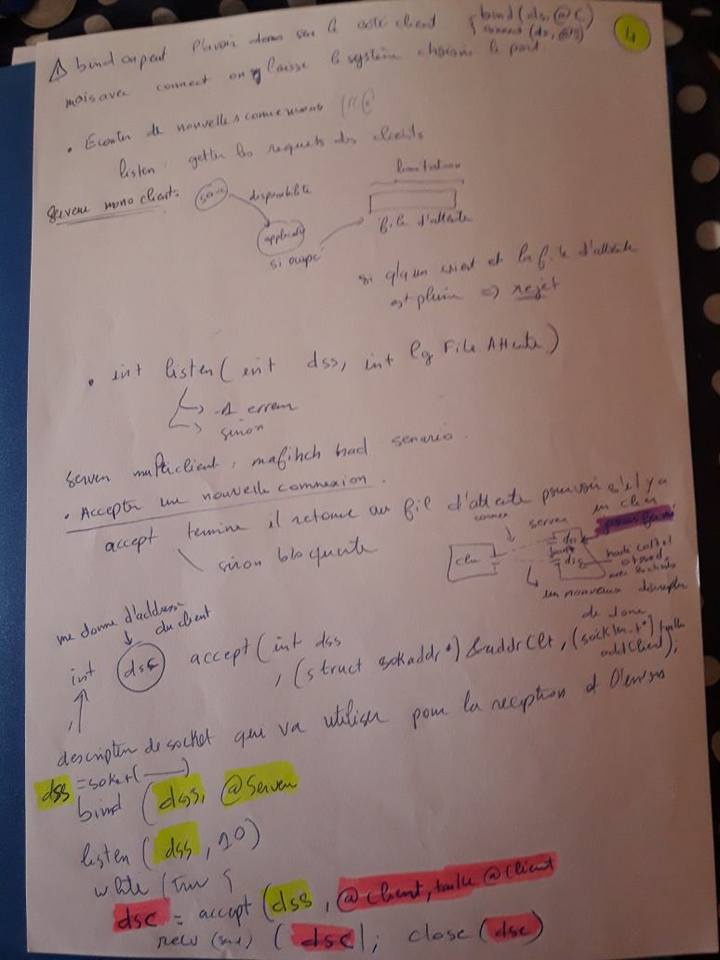 ⚠ bind on peut l'avoir dans le coté client { bind(ds, @C)
connect (ds, @S)
4
mais avec connect on laisse le système choisir le port
• Ecouter de nouvelles connexions
listen : getter les requets des clients
Serveur mono client :
serv disponibilité
limitation
file d'attente
si occupé
si qlq'un vient et la file d'attente
est plein => rejet
• int listen( int dss, int lg File Attente)
-1 erreur
sinon
Serveur multiclient, mafihch had senario.
• Accepter une nouvelle connexion.
accept termine il retourne au fil d'attente pour voir s'il y a
un client
sinon bloquante
server
un nouveau descripteur
me donne d'addresse
du client
int dsc accept( int dss
, (struct sokaddr*) &addrClt, (socklen_t*) taille
addClient);
descripteur de socket qui va utiliser pour la reception et l'envoi
dss = soket( — )
bind ( dss, @Server
listen ( dss , 10)
while (True {
dsc = accept (dss , @client, taille @client
recv ( dsc ); close ( dsc )